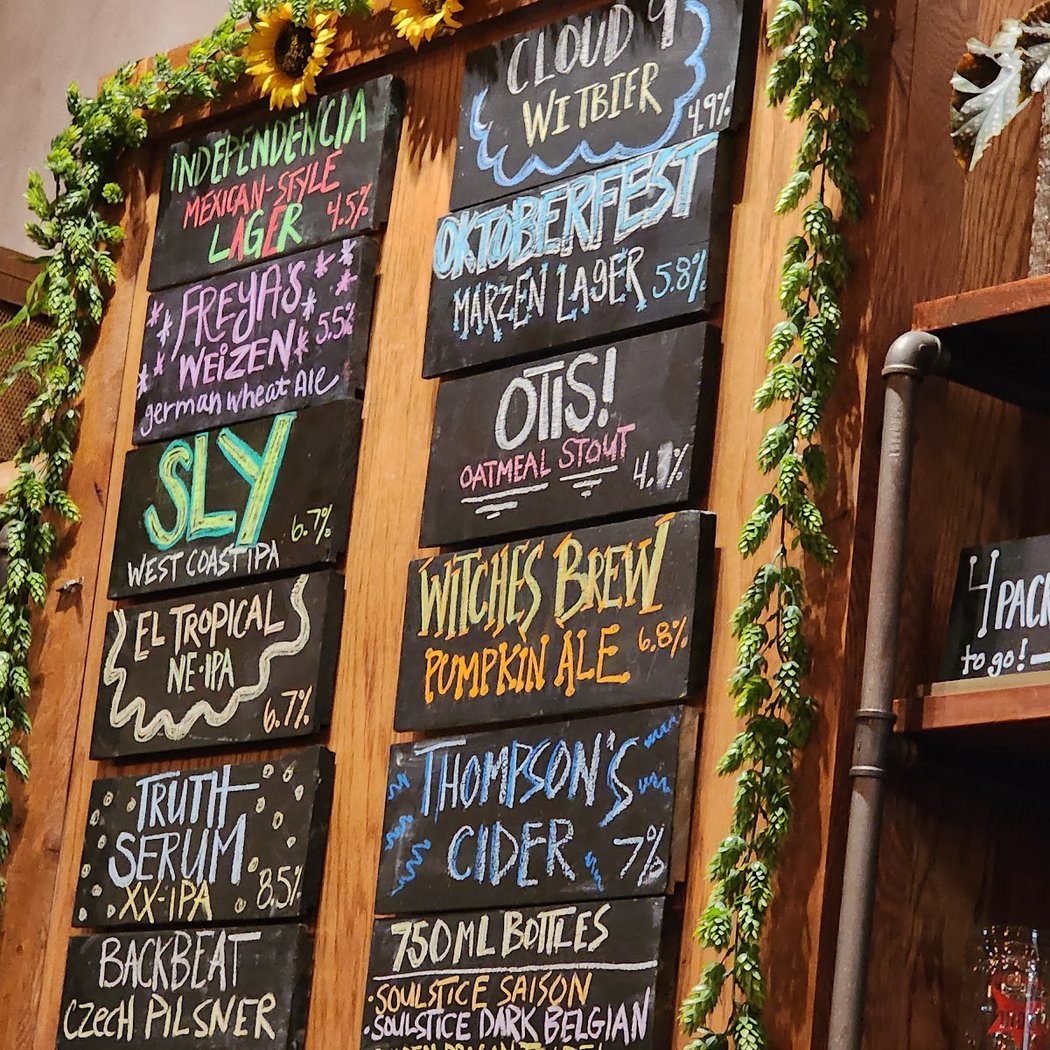 INDEPENDENCIA
MEXICAN-STYLE
LAGER 4.5%
FREYA'S
WEIZEN 5.5%
german wheat Ale
SLY
6.7%
WEST COAST IPA
EL TROPICAL
NE-IPA
6.7%
TRUTH
SERUM
XX-IPA 8.5%
BACKBEAT
CZECH PILSNER
CLOUD 9
WITBIER
4.9%
OKTOBERFEST
MARZEN LAGER 5.8%
OTIS!
OATMEAL STOUT
WITCHES BREW
PUMPKIN ALE 6.8%
THOMPSON'S
CIDER 7%
750ML BOTTLES
·SOULSTICE SAISON
·SOULSTICE DARK BELGIAN
4 PACK
to go!